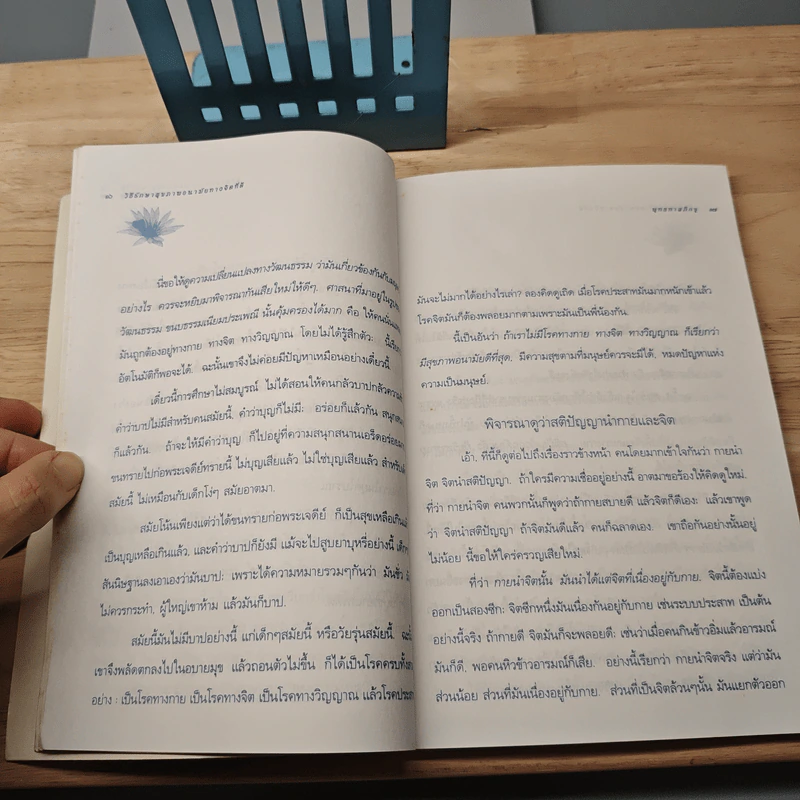 วิธีรักษาสุขภาพอนามัยทางจิตที่ดี
นี่ขอให้ดูความเปลี่ยนแปลงทางวัฒนธรรม ว่ามันเกี่ยวข้องกันกับ
อย่างไร ควรจะหยิบมาพิจารณากันเสียใหม่ให้ดีๆ. ศาสนาที่มาอยู่ใน
วัฒนธรรม ขนบธรรมเนียมประเพณี นั้นคุ้มครองได้มาก คือ ให้คน
มันถูกต้องอยู่ทางกาย ทางจิต ทางวิญญาณ โดยไม่ได้รู้สึกตัว: นี้
อัตโนมัติก็พอจะได้. ฉะนั้นเขาจึงไม่ค่อยมีปัญหาเหมือนอย่างเดี๋ยวนี้
เดี๋ยวนี้การศึกษาไม่สมบูรณ์ ไม่ได้สอนให้คนกลัวบาปกลัว
คำว่าบาปไม่มีสำหรับคนสมัยนี้, คำว่าบุญก็ไม่มี: อร่อยก็แล้วกัน
ก็แล้วกัน. ถ้าจะให้มีคำว่าบุญ ก็ไปอยู่ที่ความสนุกสนานเอร็ดอร่อย
ขนทรายไปก่อพระเจดีย์ทรายนี้ ไม่บุญเสียแล้ว ไม่ใช่บุญเสียแล้ว สำหรับ
สมัยนี้ ไม่เหมือนกับเด็กโง่ๆ สมัยอาตมา.
สมัยโน้นเพียงแต่ว่าได้ขนทรายก่อพระเจดีย์ ก็เป็นสุขเหลือเกิน
เป็นบุญเหลือเกินแล้ว, และคำว่าบาปก็ยังมี แม้จะไปสูบยาบุหรี่อย่างนี้
สันนิษฐานลงเอาเองว่ามันบาป: เพราะได้ความหมายรวมๆกันว่า มันชั่ว
ไม่ควรกระทำ, ผู้ใหญ่เขาห้าม แล้วมันก็บาป.
สมัยนี้มันไม่มีบาปอย่างนี้ แก่เด็กๆสมัยนี้ หรือวัยรุ่นสมัยนี้.
เขาจึงพลัดตกลงไปในอบายมุข แล้วถอนตัวไม่ขึ้น ก็ได้เป็นโรคครบทั้ง
อย่าง : เป็นโรคทางกาย เป็นโรคทางจิต เป็นโรคทางวิญญาณ แล้วโรค
พุทธทาสภิกขุ
มันจะไม่มากได้อย่างไรเล่า? ลองคิดดูเถิด เมื่อโรคประสาทมันมากหนักเข้าแล้ว
โรคจิตมันก็ต้องพลอยมากตามเพราะมันเป็นพี่น้องกัน.
นี้เป็นอันว่า ถ้าเราไม่มีโรคทางกาย ทางจิต ทางวิญญาณ ก็เรียกว่า
มีสุขภาพอนามัยดีที่สุด, มีความสุขตามที่มนุษย์ควรจะมีได้, หมดปัญหาแห่ง
ความเป็นมนุษย์.
พิจารณาดูว่าสติปัญญานำกายและจิต
เอ้า, ทีนี้ก็ดูต่อไปถึงเรื่องราวข้างหน้า คนโดยมากเข้าใจกันว่า กายนำ
จิต จิตนำสติปัญญา. ถ้าใครมีความเชื่ออยู่อย่างนี้ อาตมาขอร้องให้คิดดูใหม่.
ที่ว่า กายนำจิต คนพวกนั้นก็พูดว่าถ้ากายสบายดี แล้วจิตก็ดีเอง: แล้วเขาพูด
ว่า จิตนำสติปัญญา ถ้าจิตมันดีแล้ว คนก็ฉลาดเอง. เขาถือกันอย่างนั้นอยู่
ไม่น้อย นี้ขอให้ใคร่ครวญเสียใหม่.
ที่ว่า กายนำจิตนั้น มันนำได้แต่จิตที่เนื่องอยู่กับกาย. จิตนี้ต้องแบ่ง
ออกเป็นสองซีก: จิตซีกหนึ่งมันเนื่องกันอยู่กับกาย เช่นระบบประสาท เป็นต้น
อย่างนี้จริง ถ้ากายดี จิตมันก็จะพลอยดี: เช่นว่าเมื่อคนกินข้าวอิ่มแล้วอารมณ์
มันก็ดี, พอคนหิวข้าวอารมณ์ก็เสีย. อย่างนี้เรียกว่า กายนำจิตจริง แต่ว่ามัน
ส่วนน้อย ส่วนที่มันเนื่องอยู่กับกาย. ส่วนที่เป็นจิตล้วนๆนั้น มันแยกตัวออก